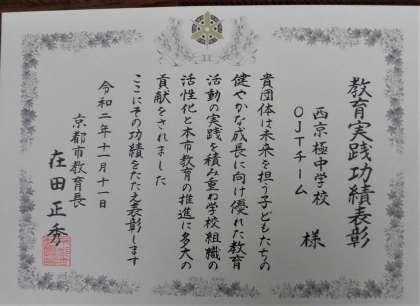 教育実践功績表彰
西京極中学校
OJTチーム 様
貴団体は未来を担う子どもたちの
健やかな成長に向け優れた教育
活動の実践を積み重ね学校組織の
活性化と本市教育の推進に多大の
貢献をされました
ここにその功績をたたえ表彰します
令和二年十一月一日
京都市教育長
在田正秀